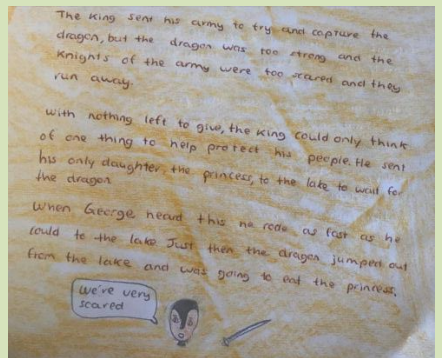 The King sent his army to try and capture the
dragon, but the dragon was too strong and the
Knights of the army were too scared and they
run away.
With nothing left to give, the King could only think
of one thing to help protect his people. He sent
his only daughter, the princess, to the lake to wait for
the dragon
When George heard this he rode as fast as he
could to the lake Just then the dragon jumped out
from the lake and was going to eat the princess.
We're very
scared